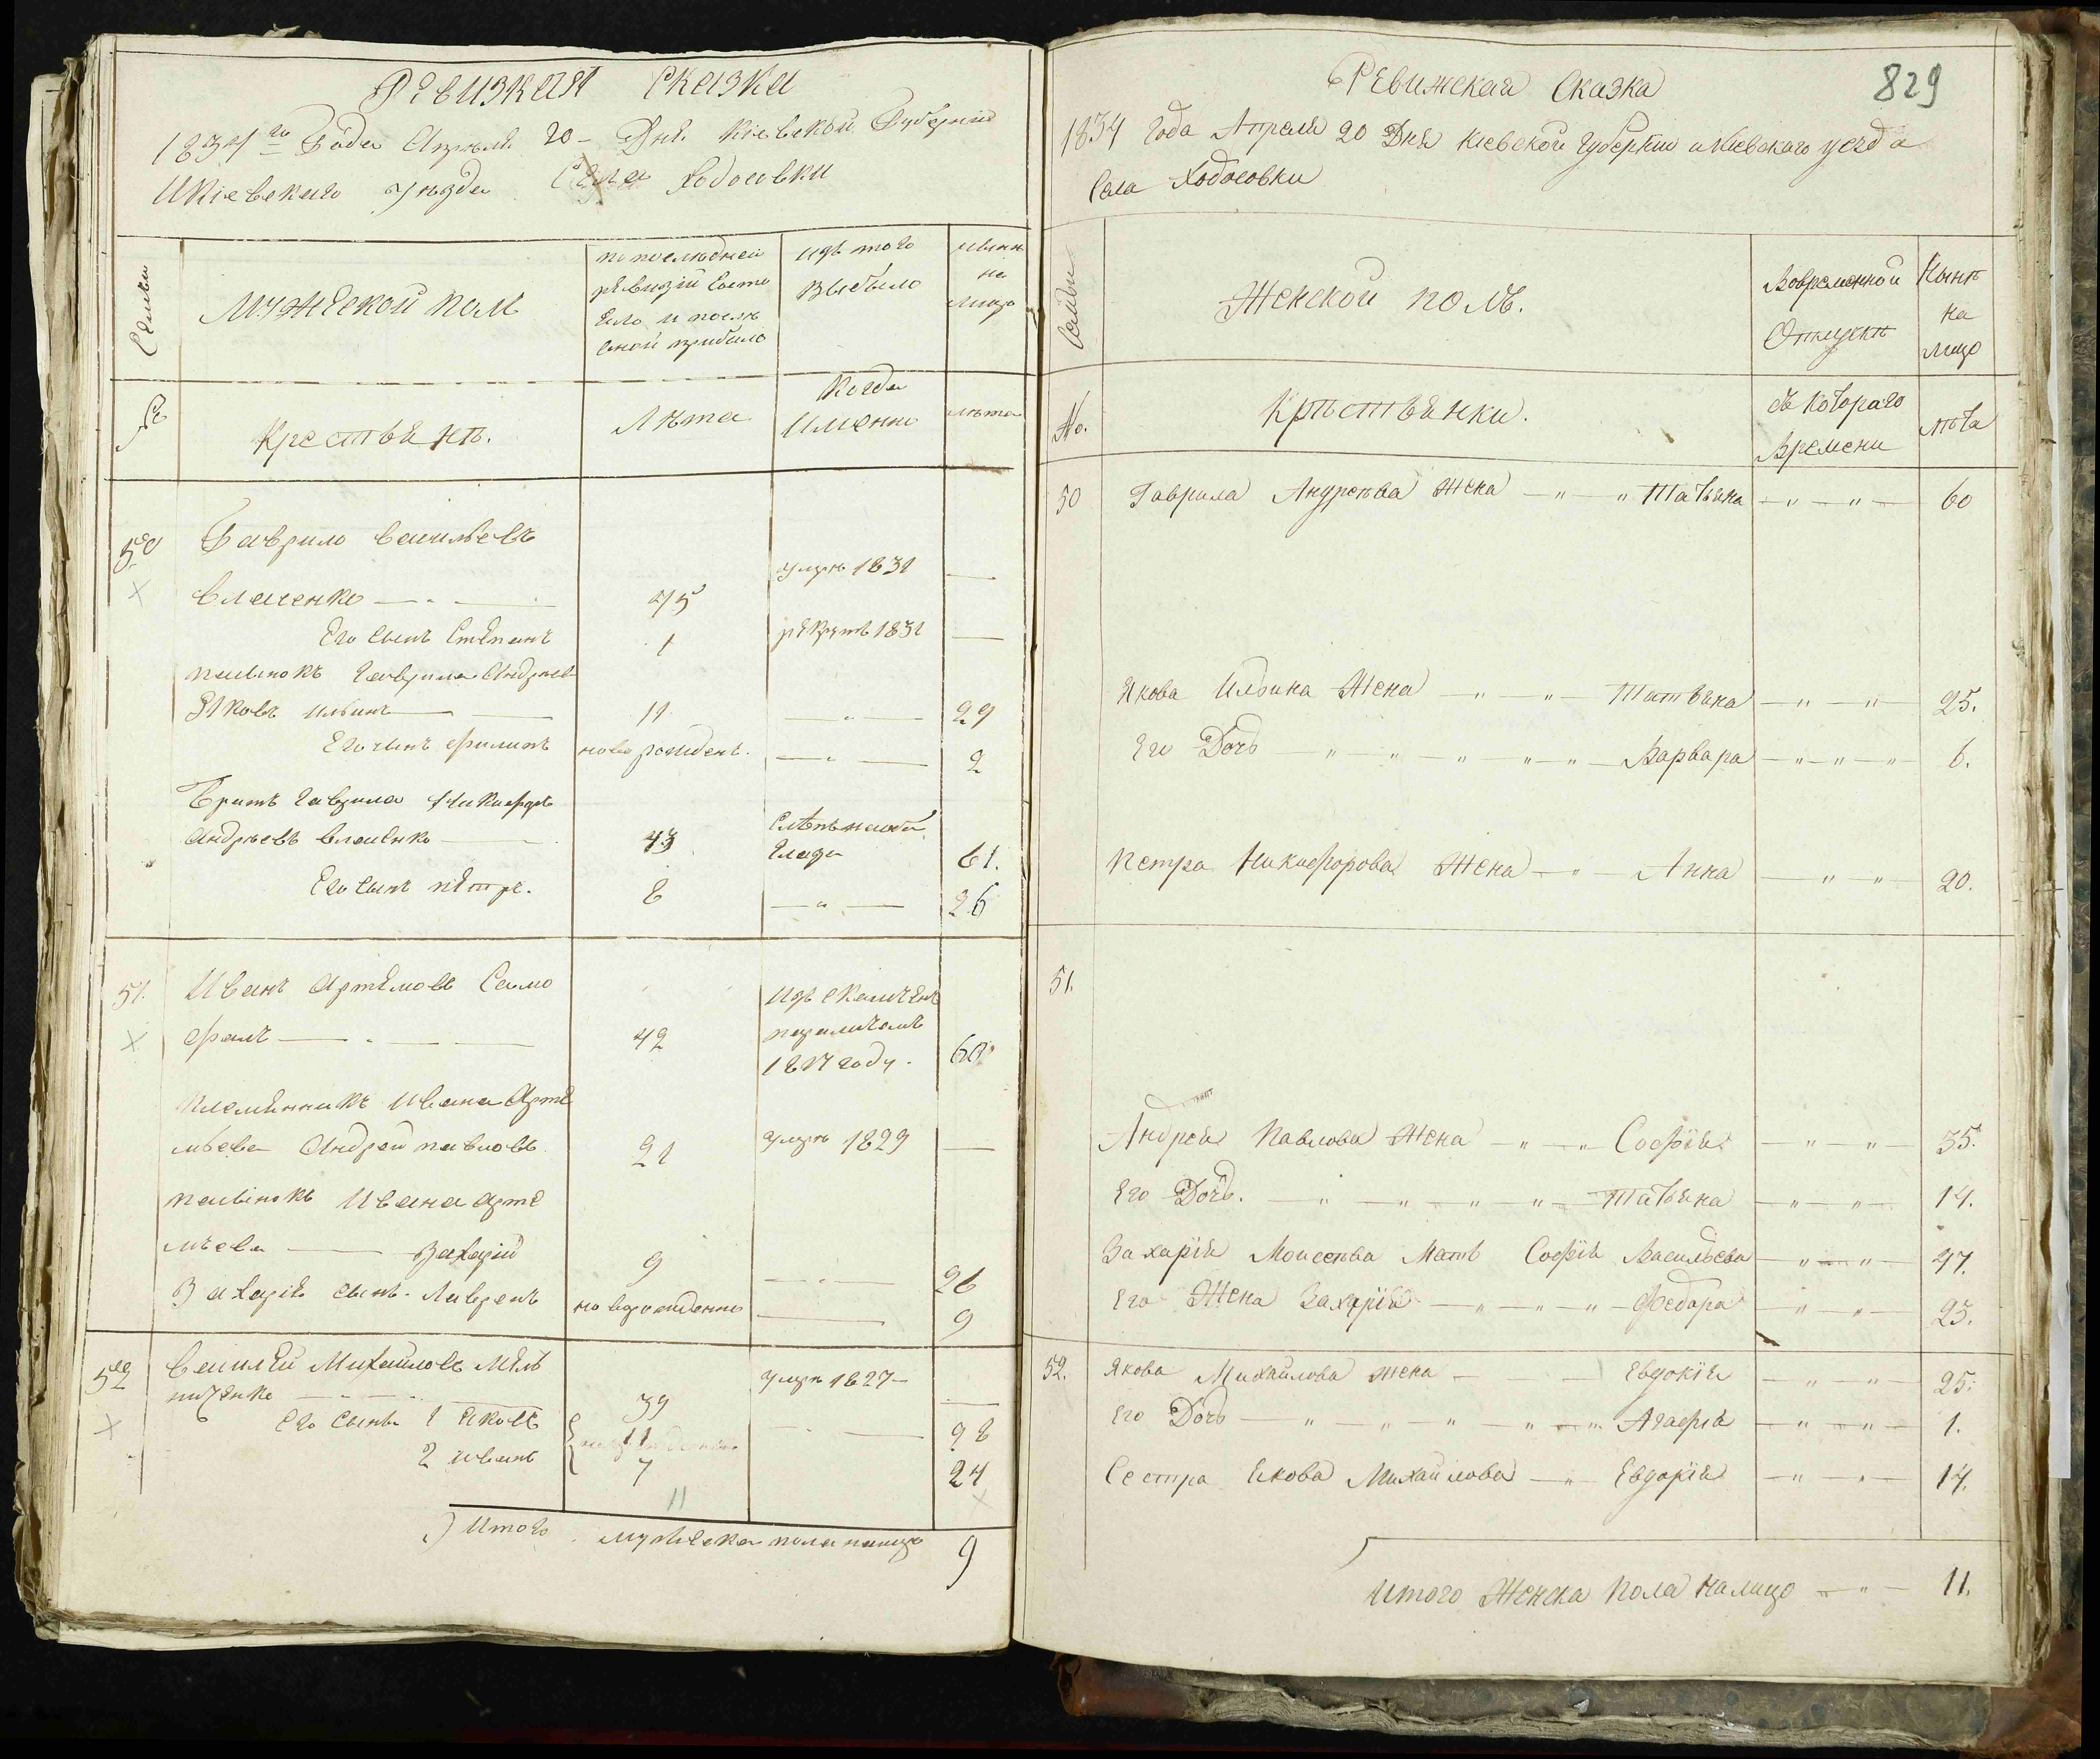 Ревизкая сказка
1834го Года Апреля 20 Дня Кіевской Губерніи
И Кіевскаго уѣзда Села Ходосовки
Семьи
Мужеской пол
по последней
ревизіи состо
яло и после
оной прибыло
изъ того
выбыло
нынѣ
на
лицо
№
Крестьянъ.
Лѣта
Когда
Именно
лѣта
50
Гаврило
Власенко
75
умре 1831
Его сынъ Степанъ
1
рекрут 1831
пасынокъ Гаврила Андреев
Яковъ Ильинъ
11
29
Его сынъ Филипъ
новорожденъ.
2
Братъ Гаврила Никифоръ
Андрѣевъ Власенко
43
61.
Его сынъ Петръ.
8
26
51.
Иванъ Артемовъ Само
фалъ
42
параличомъ
1817 году.
60
племянникъ Ивана Арте
мьева Андрей Павловъ
21
умре 1829
пасынокъ Ивана Арте
мьева Захарій
9
26
Захарія сынъ Лаврен
новорожденно
9
52
Василій Михайловъ Мель
ниченко
39
умре 1827
Его сынъ 1 Яковъ
11
28
2 Иванъ
7
24
11
Итого мужеска пола налицо 9
829
Ревижская Сказка
1834 Года Апреля 20 Дня Кіевской Губерніи и Кіевскаго уезда
Села Ходосовки
Семьи
Женской полъ.
Вовременной
Отлучкѣ
Нынѣ
на
лицо
No.
Крѣстьянки.
съ котораго
Времени
лѣта
50 Гаврила Андрѣева Жена Татьяна 60
Якова Ильина Жена Татьяна 25.
Его Дочь Варвара 6.
Петра Никифорова Жена Анна 20.
51.
Андрея Павлова Жена Софія 35.
Его Дочь. Татьяна 14.
Захарія Моисеева Мать Софія Васильева 47.
Его Жена Захарія Федора 25.
52. Якова Михайлова жена Евдокія 25.
Его Дочь Агафія 1.
Сестра Якова Михайлова Евдокія 14.
Итого Женска Пола Налицо 11.